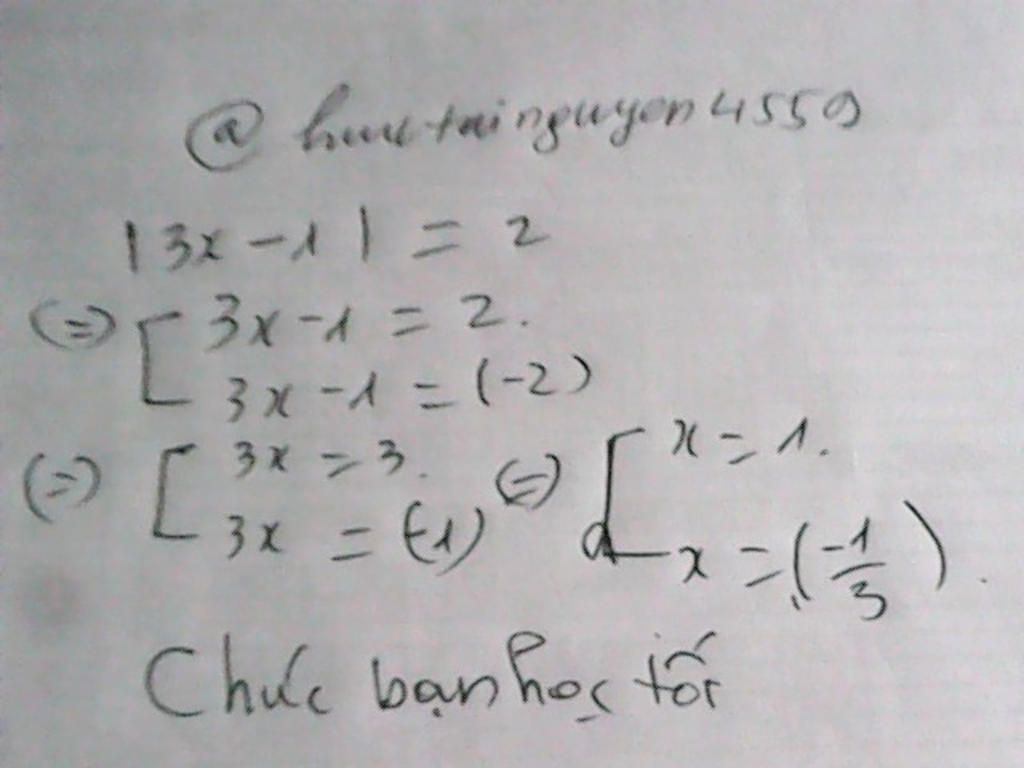 @ huutainguyen4559
|3x - 1| = 2
(=) [ 3x - 1 = 2.
3x - 1 = (-2)
(=) [ 3x = 3. (=) [ x = 1.
3x = (-1) x = (-1/3).
Chúc bạn học tốt